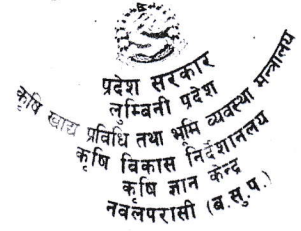 प्रदेश सरकार
लुम्बिनी प्रदेश
कृषि खाद्य प्रविधि तथा भूमि व्यवस्था मन्त्रालय
कृषि विकास निर्देशानलय
कृषि ज्ञान केन्द्र
नवलपरासी (ब.सु.प.)